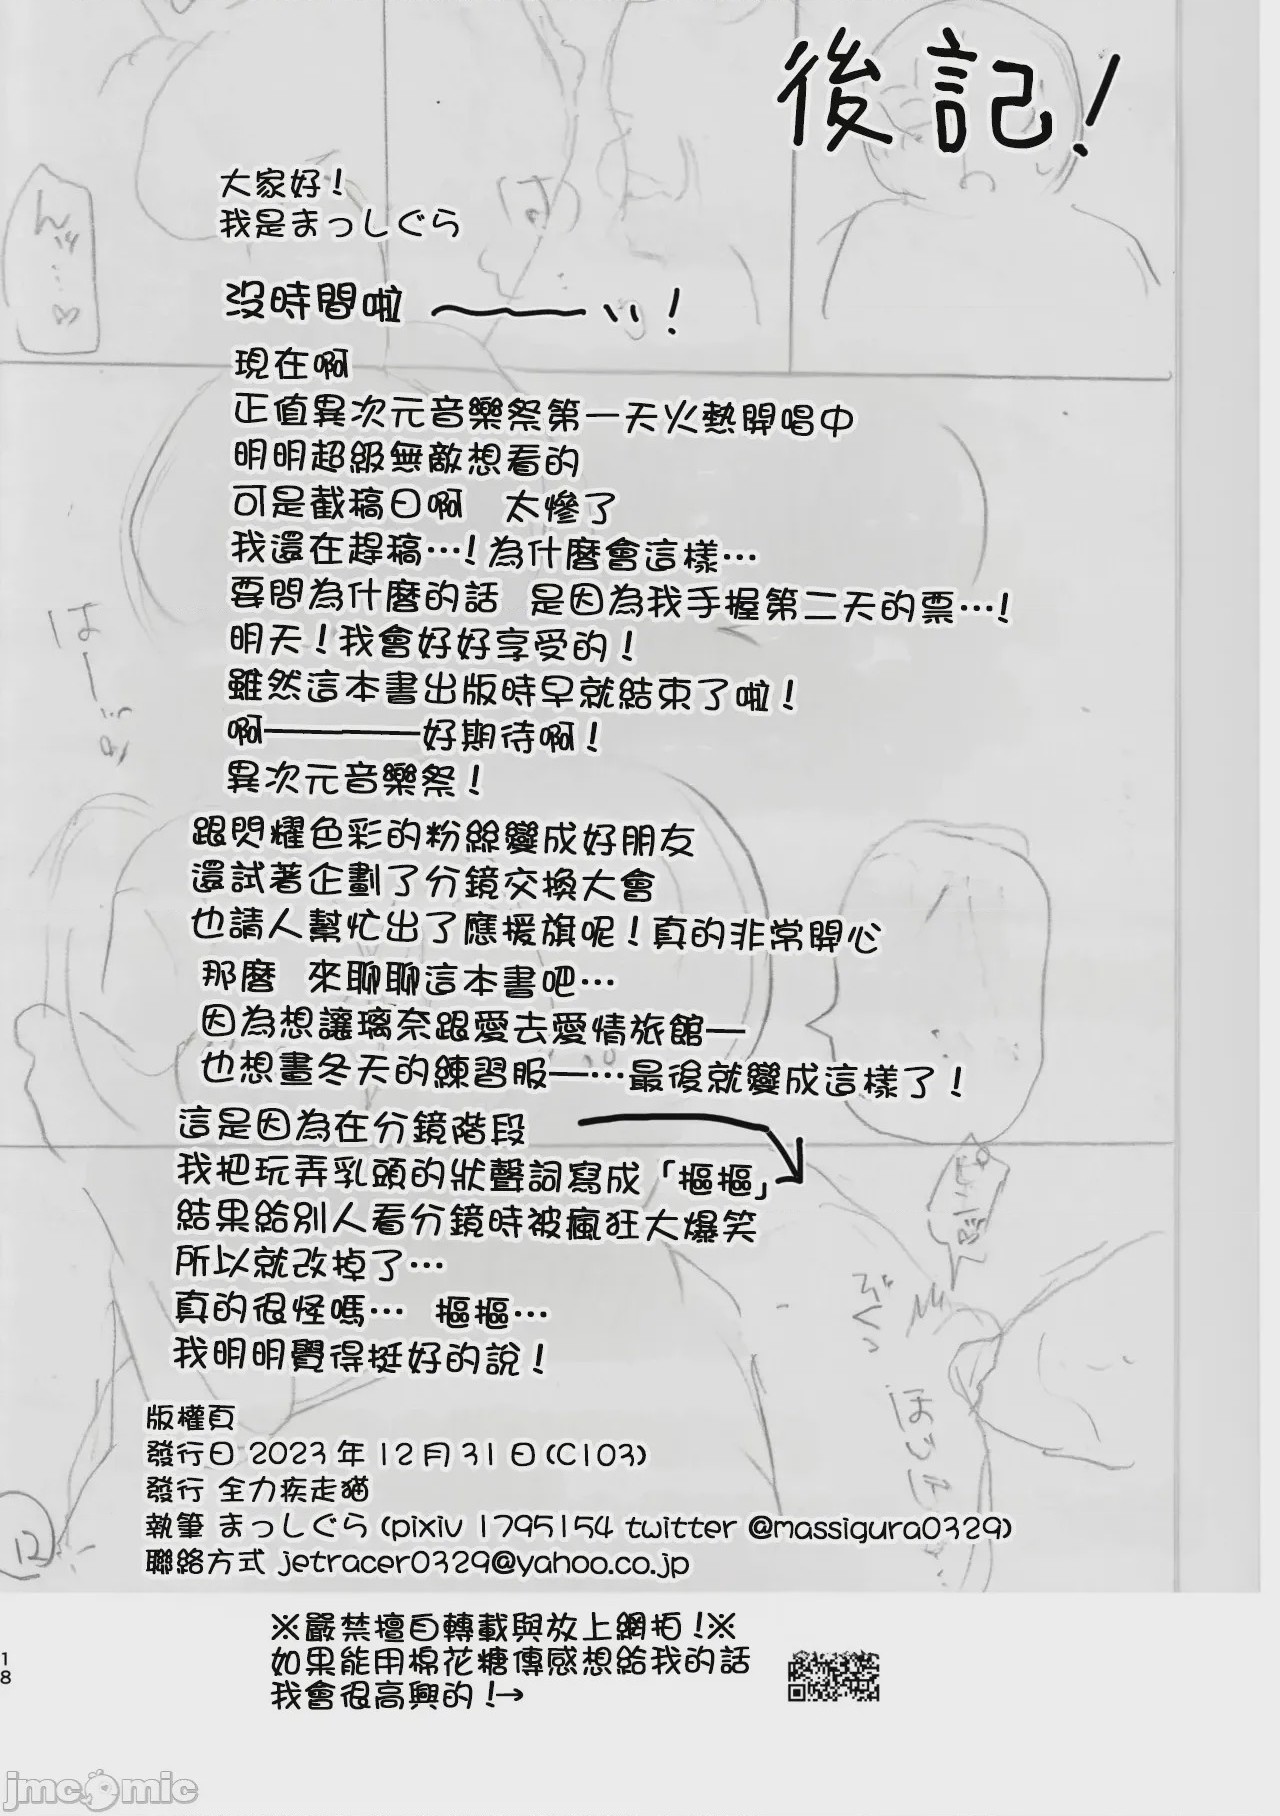 後記！
大家好！
我是まっしぐら
沒時間啦 ～～ッ！
現在啊
正值異次元音樂祭第一天火熱開唱中
明明超級無敵想看的
可是截稿日啊 太慘了
我還在趕稿…！為什麼會這樣…
要問為什麼的話 是因為我手握第二天的票…！
明天！我會好好享受的！
雖然這本書出版時早就結束了啦！
啊————好期待啊！
異次元音樂祭！
跟閃耀色彩的粉絲變成好朋友
還試著企劃了分鏡交換大會
也請人幫忙出了應援旗呢！真的非常開心
那麼 來聊聊這本書吧…
因為想讓璃奈跟愛去愛情旅館—
也想畫冬天的練習服—…最後就變成這樣了！
這是因為在分鏡階段
我把玩弄乳頭的狀聲詞寫成「摳摳」
結果給別人看分鏡時被瘋狂大爆笑
所以就改掉了…
真的很怪嗎… 摳摳…
我明明覺得挺好的說！
版權頁
發行日 2023年12月31日(C103)
發行 全力疾走猫
執筆 まっしぐら (pixiv 1795154 twitter @massigura0329)
聯絡方式 jetracer0329@yahoo.co.jp
※嚴禁擅自轉載與放上網拍！※
如果能用棉花糖傳感想給我的話
我會很高興的！→
18
ん…♡
は
はー
ぞくっ
12
jmcomic